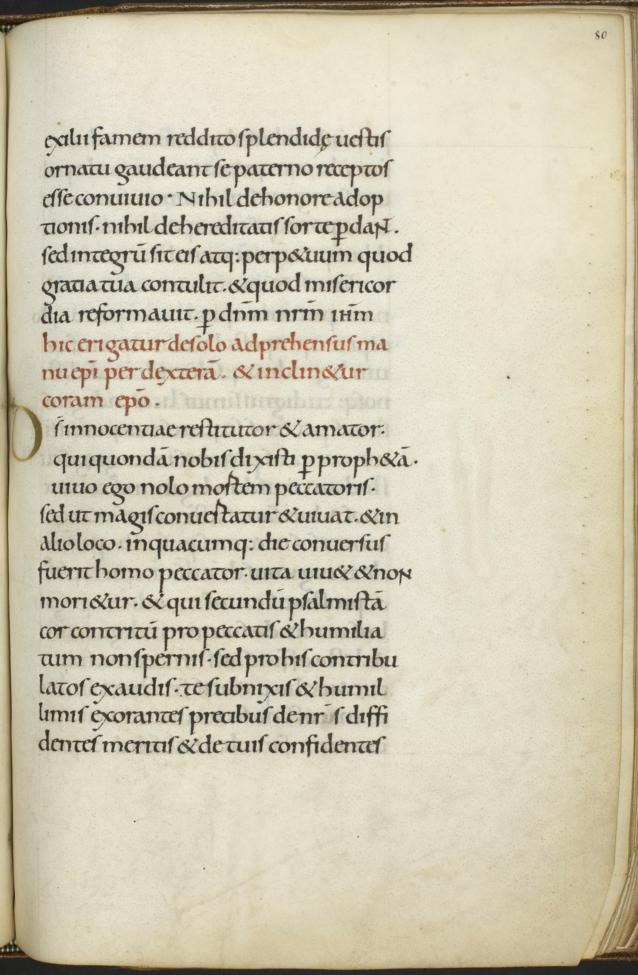 80
exilii famem reddito splendidę uestis
ornatu gaudeant se paterno receptos
esse conuiuio · Nihil de honore adop
tionis · nihil de hereditatis sorte p̱daN .
sed integrū sit eis atq: perp&uum quod
gratia tua contulit . & quod misericor
dia reformauit . p̱ dn̄m nr̄m ihm̄
hic erigatur de solo adprehensus ma
nu ep̄i per dexterā . & inclin&ur
coram ep̄o .
Ds̄ innocentiae restitutor & amator ·
qui quondā nobis dixisti p̱ proph&ā ·
uiuo ego nolo mortem peccatoris ·
sed ut magis conuertatur & uiuat . & in
alio loco · in quacumq: die conuersus
fuerit homo peccator · uita uiu& & noN
mori&ur · & qui secundū psalmistā
cor contritū pro peccatis & humilia
tum non spernis · sed pro his contribu
latos exaudis · te subnixis & humil
limis exorantes precibus de nr̄ s diffi
dentes meritis & de tuis confidentes